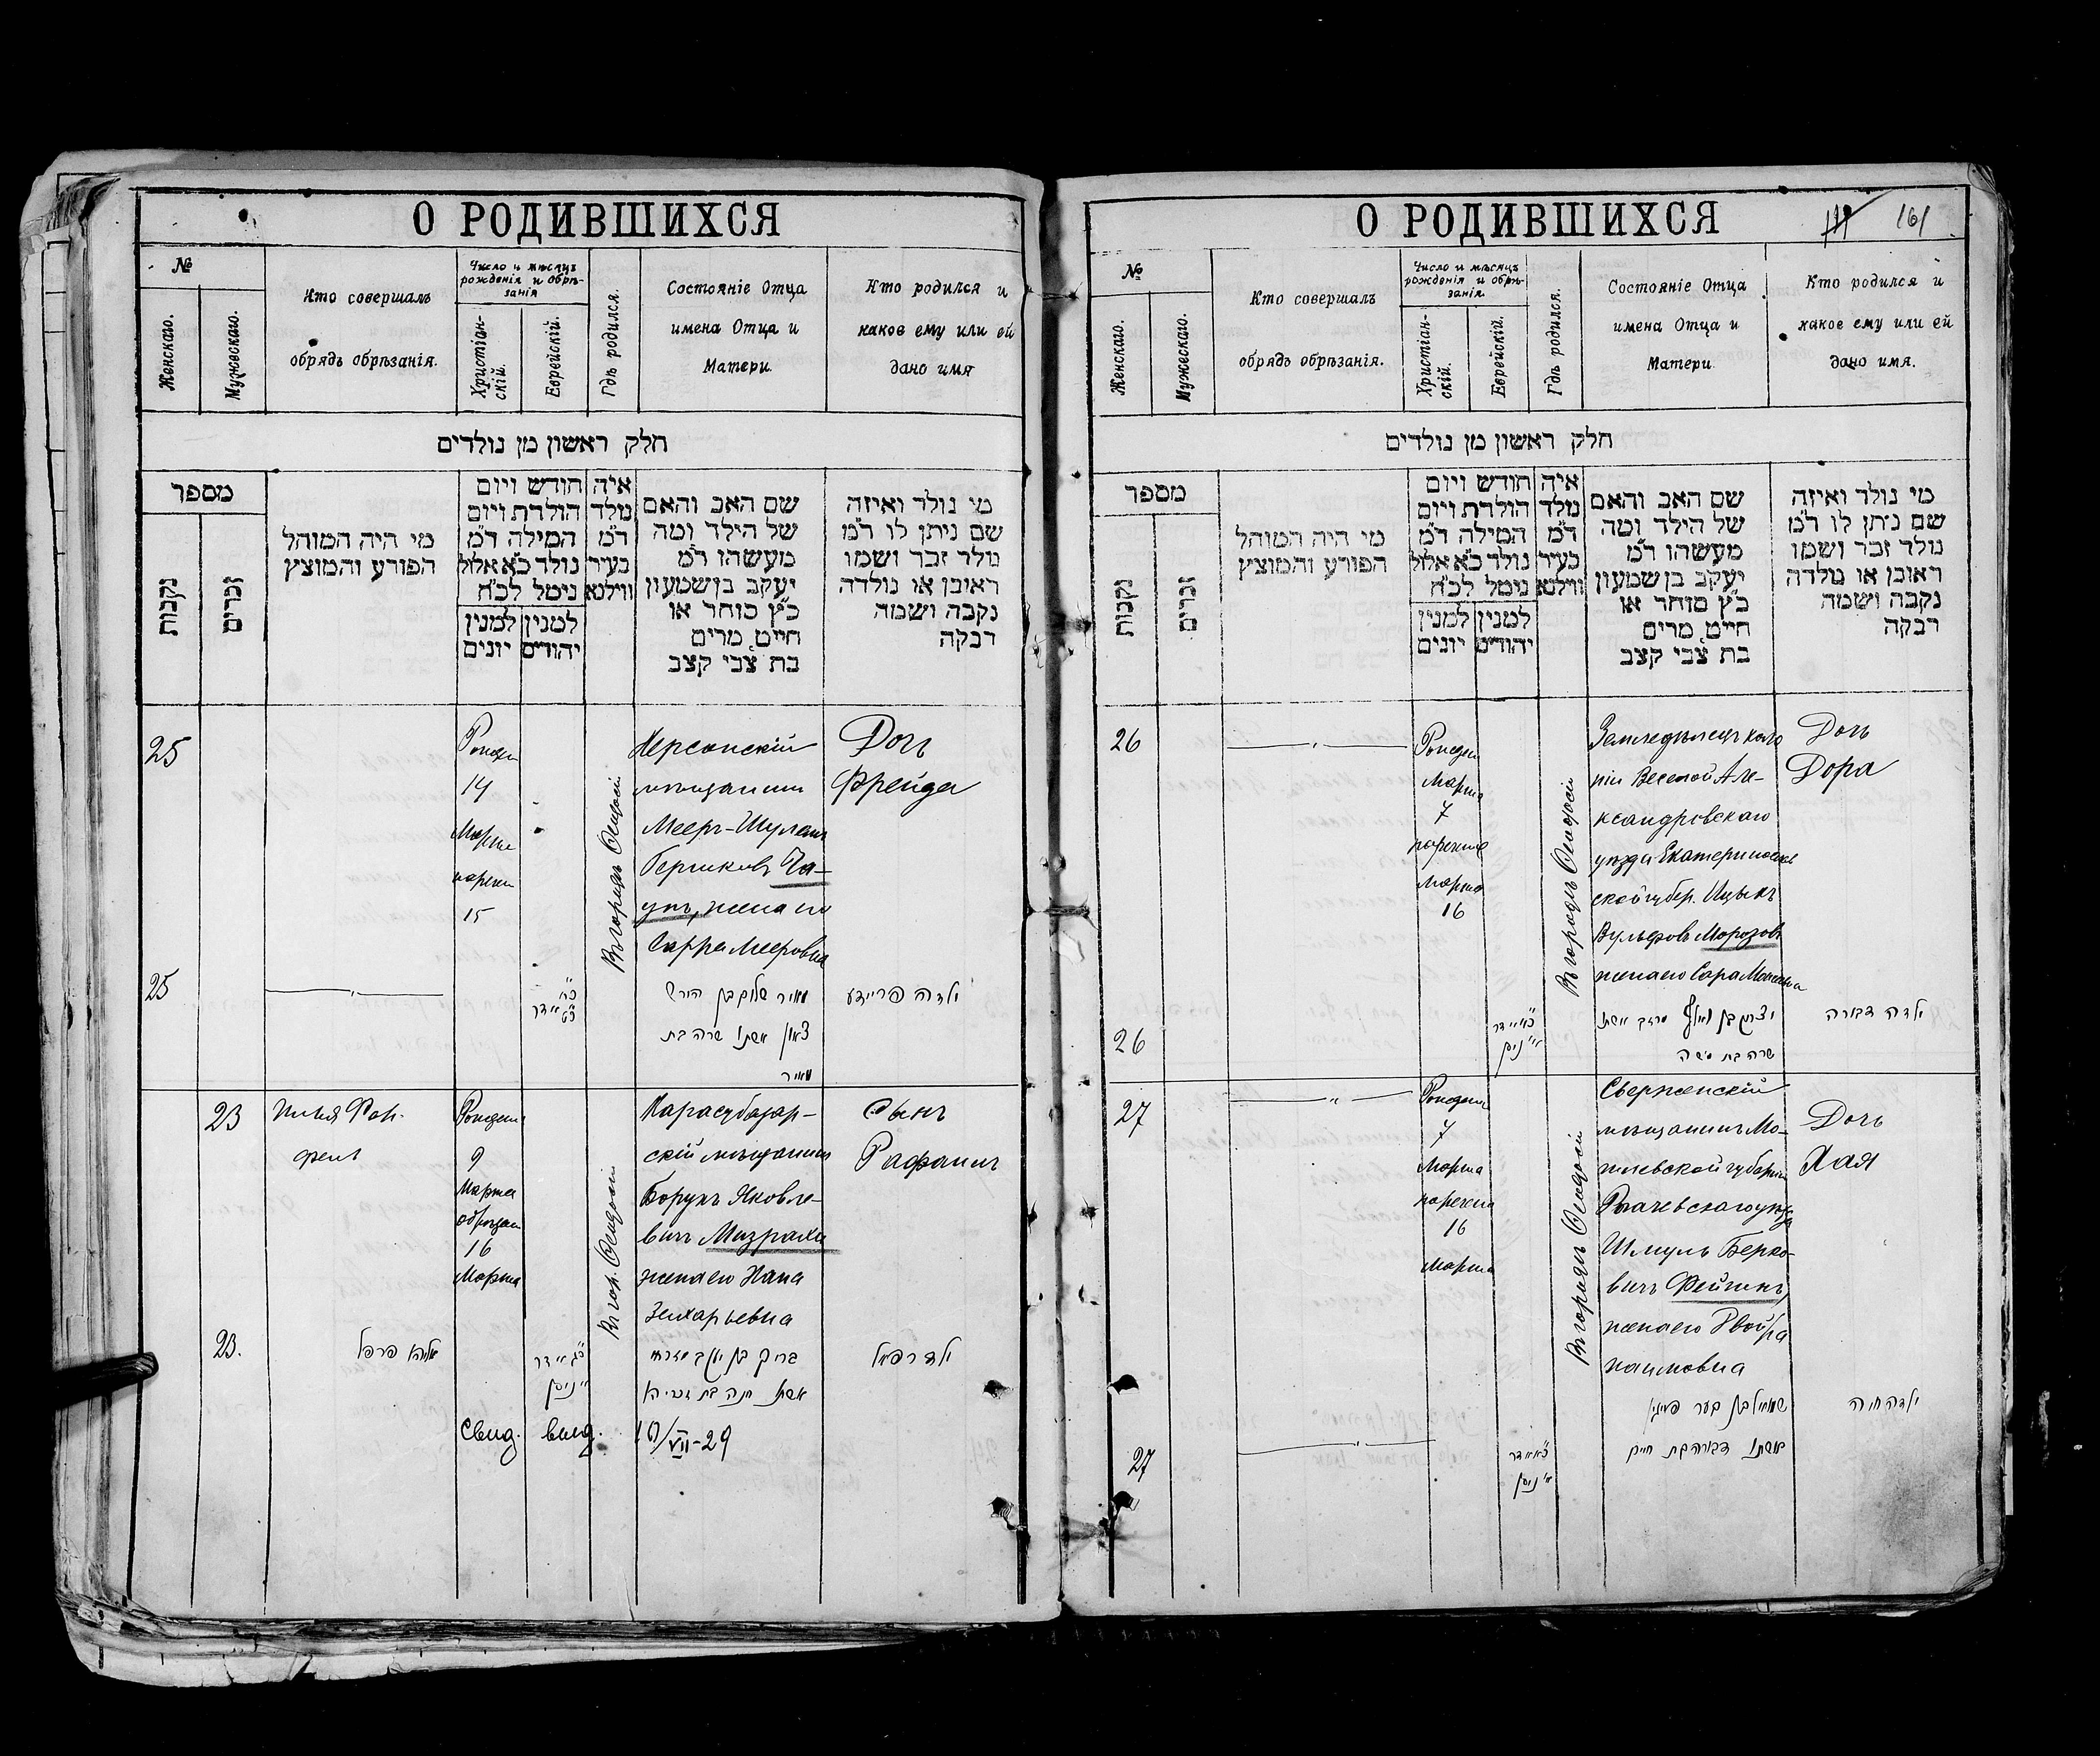 О РОДИВШИХСЯ
№
Женскаго.
Мужескаго.
Кто совершалъ
обрядъ обрѣзанія.
Число и мѣсяцъ
рожденія и обрѣ-
занія
Христіан-
скій.
Еврейскій.
Гдѣ родился.
Состояніе Отца
имена Отца и
Матери.
Кто родился и
какое ему или ей
дано имя
חלק ראשון מן נולדים
מספר
נקבות
זכרים
מי היה המוהל
הפורע והמוצץ
חודש ויום
הולדת ויום
המילה ד״מ
נולד כ״א אלול
נימל לכ״ח
למנין
יהודים
למנין
יונים
איה
נולד
ד״מ
בעיר
ווילנא
שם האב והאם
של הילד ומה
מעשהו ד״מ
יעקב בן שמעון
כ״ץ סוחר או
חייט מרים
בת צבי קצב
מי נולד ואיזה
שם ניתן לו ד״מ
נולד זכר ושמו
ראובן או נולדה
נקבה ושמה
רבקה
25
14
Марта
15
Въ городѣ Ѳеодосіи
Херсонскій
мѣщанинъ
Мееръ-Шулемъ
Гершковъ Ча-
унъ, жена его
Сарра Мееровна
Дочь
Фрейда
25
מאיר שלום בן הירש
אשתו שרה בת
מאיר
ילדה פריידע
23
Илья Фар-
фель
9
Марта
16
Марта
Въ гор. Ѳеодосіи
Карасубазар-
скій мѣщанинъ
Борухъ Яковле-
вичъ Мизрахи
жена его Хана
Захарьевна
Сынъ
Рафаилъ
23.
אליהו פרפל
ברוך בן יעקב מזרחי
אשתו חנה בת זכריה
ילד רפאל
Свид. выд. 10/VII-29
О РОДИВШИХСЯ
161
№
Женскаго.
Мужескаго.
Кто совершалъ
обрядъ обрѣзанія.
Число и мѣсяцъ
рожденія и обрѣ-
занія.
Христіан-
скій.
Еврейскій.
Гдѣ родился.
Состояніе Отца
имена Отца и
Матери
Кто родился и
какое ему или ей
дано имя.
חלק ראשון מן נולדים
מספר
נקבות
זכרים
מי היה המוהל
הפורע והמוצץ
חודש ויום
הולדת ויום
המילה ד״מ
נולד כ״א אלול
נימל לכ״ח
למנין
יהודים
למנין
יונים
איה
נולד
ד״מ
בעיר
ווילנא
שם האב והאם
של הילד ומה
מעשהו ד״מ
יעקב בן שמעון
כ״ץ סוחר או
חייט מרים
בת צבי קצב
מי נולד ואיזה
שם ניתן לו ד״מ
נולד זכר ושמו
ראובן או נולדה
נקבה ושמה
רבקה
26
Марта
7
наречена
Марта
16
Въ городѣ Ѳеодосіи
Земледѣлецъ коло
ніи Веселой Але-
ксандровскаго
уѣзда Екатеринослав
ской губер. Ицыкъ
Вульфовъ Морозовъ
жена его Сара Моисеевна
Дочь
Дора
26
שרה בת משה
ילדה דבורה
27
7
Марта
наречена
16
Марта
Въ городѣ Ѳеодосіи
Сверженскій
мѣщанинъ Мо-
гилевской губерніи
Рогачевскаго уѣзда
Шмуль Берко-
вичъ Фейгинъ,
жена его Двойра
Хаимовна
Дочь
Хая
27
שמואל בן בער פייגין
אשתו דבורה בת חיים
ילדה חיה